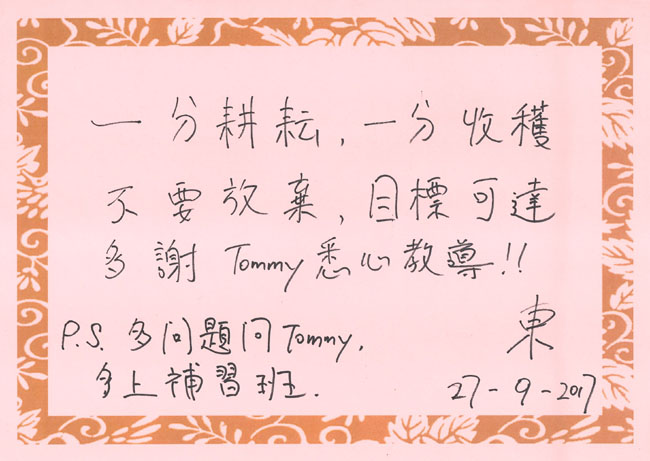 一分耕耘,一分收穫
不要放棄,目標可達
多謝 Tommy 悉心教導!!
東
P.S. 多问題问Tommy,
多上補習班.
27-9-2017